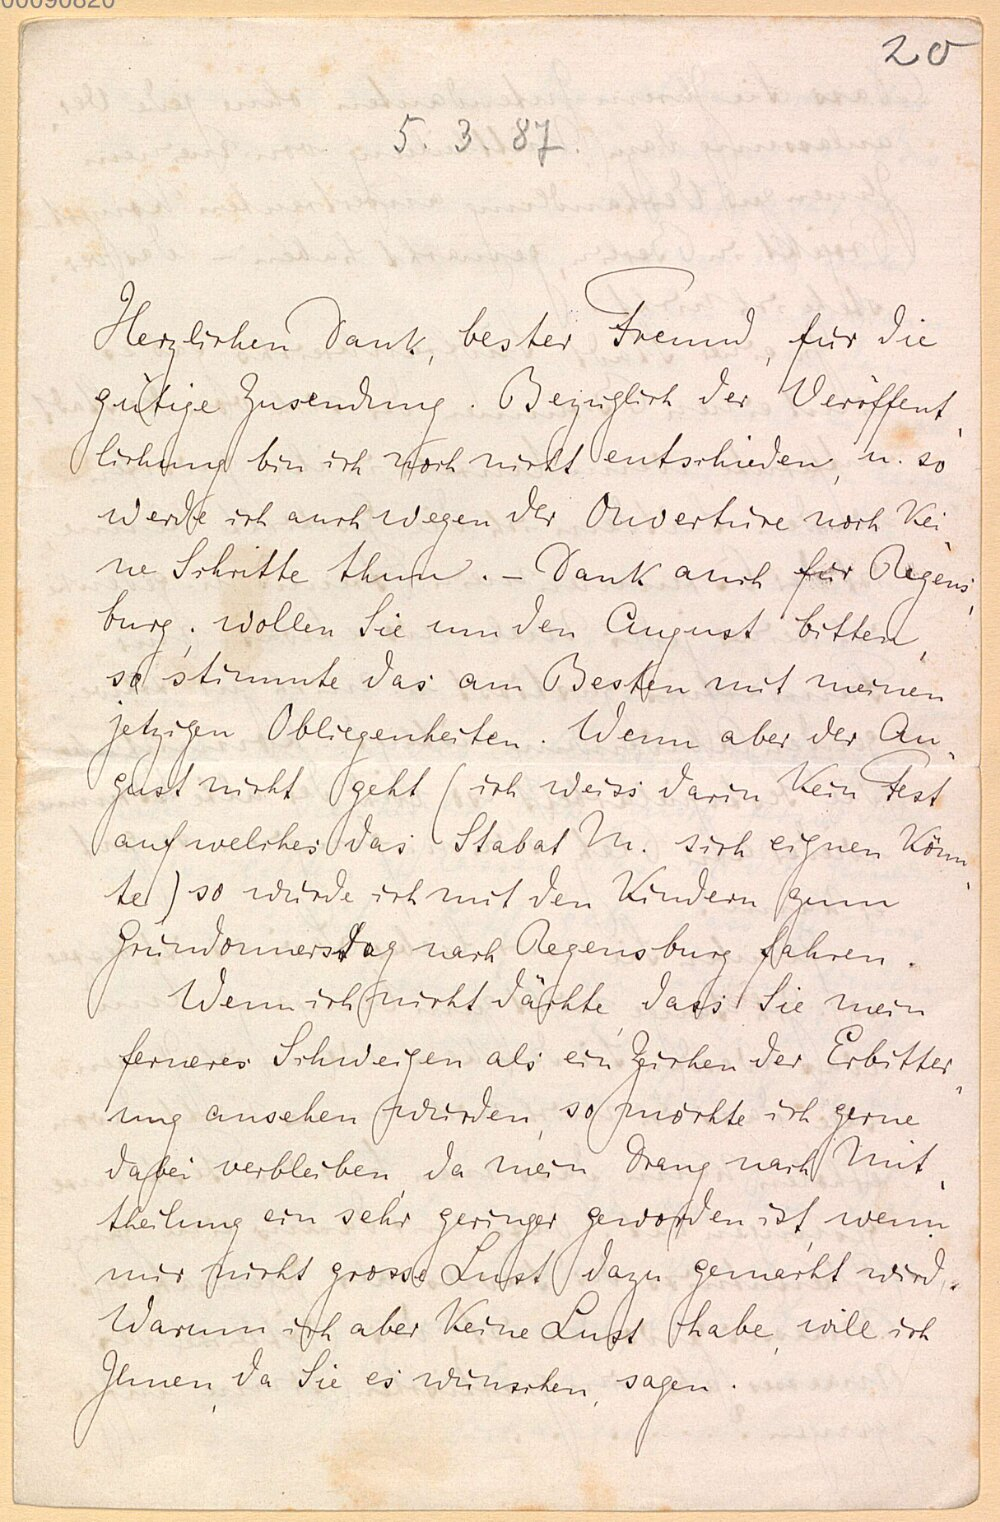 00090820
20
5. 3. 87.
Herzlichen Dank, bester Freund, für die
gütige Zusendung. Bezüglich der Veröffent-
lichung bin ich noch nicht entschieden, u. so
werde ich auch wegen der Ouvertüre noch kei-
ne Schritte thun. – Dank auch für Regens-
burg; wollen Sie um den August bitten,
so stimmte das am Besten mit meinen
jetzigen Obliegenheiten. Wenn aber der Au-
gust nicht geht (ich weiss darin kein Fest
auf welches das Stabat M. sich eignen könn-
te) so würde ich mit den Kindern zum
Gründonnerstag nach Regensburg fahren.
Wenn ich nicht dächte, dass Sie mein
ferneres Schweigen als ein Zeichen der Erbitter-
ung ansehen würden, so möchte ich gerne
dabei verbleiben, da mein Drang nach Mit-
theilung ein sehr geringer geworden ist, wenn
mir nicht grosse Lust dazu gemacht wird.
Warum ich aber keine Lust habe, will ich
Ihnen, da Sie es wünschen, sagen.